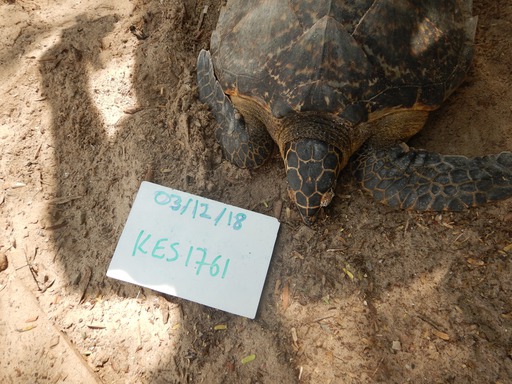 03/12/18
KES1761